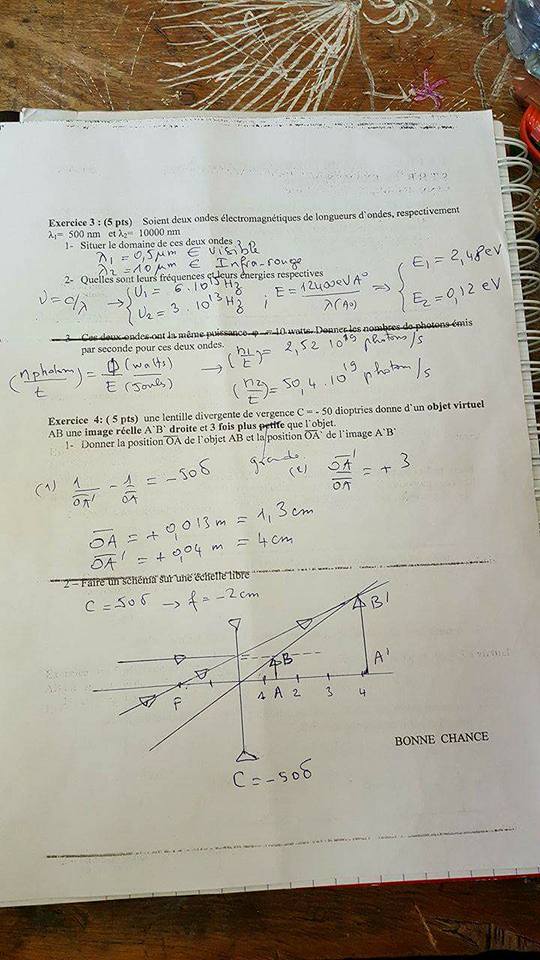 Exercice 3 : (5 pts) Soient deux ondes électromagnétiques de longueurs d'ondes, respectivement
λ₁= 500 nm et λ₂= 10000 nm
1- Situer le domaine de ces deux ondes
λ₁ = 0,5 μm ∈ visible
λ₂ = 10 μm ∈ Infra-rouge
2- Quelles sont leurs fréquences et leurs énergies respectives
ν = c/λ → { ν₁ = 6.10¹⁵ Hz ; E = 12400 eV A° / λ(A°) ⇒ { E₁ = 2,48 eV
ν₂ = 3.10¹³ Hz E₂ = 0,12 eV
3- Ces deux ondes ont la même puissance φ = 10 watts. Donner les nombres de photons émis
par seconde pour ces deux ondes.
(n photons / t) = Φ (watts) / E (Joules) → (n₁/t) = 2,52 10¹⁹ photons/s
(n₂/t) = 50,4 . 10¹⁹ photon/s
Exercice 4: ( 5 pts) une lentille divergente de vergence C = - 50 dioptries donne d'un objet virtuel
AB une image réelle A`B` droite et 3 fois plus petite que l'objet.
grande
1- Donner la position OA de l'objet AB et la position OA` de l'image A`B`
(1) 1/OA' - 1/OA = -50δ (2) OA'/OA = + 3
OA = + 0,013 m = 1,3 cm
OA' = + 0,04 m = 4 cm
2 – Faire un schéma sur une échelle libre
C = -50δ → f = -2 cm
B'
B
A'
F 1 A 2 3 4
BONNE CHANCE
C = -50δ